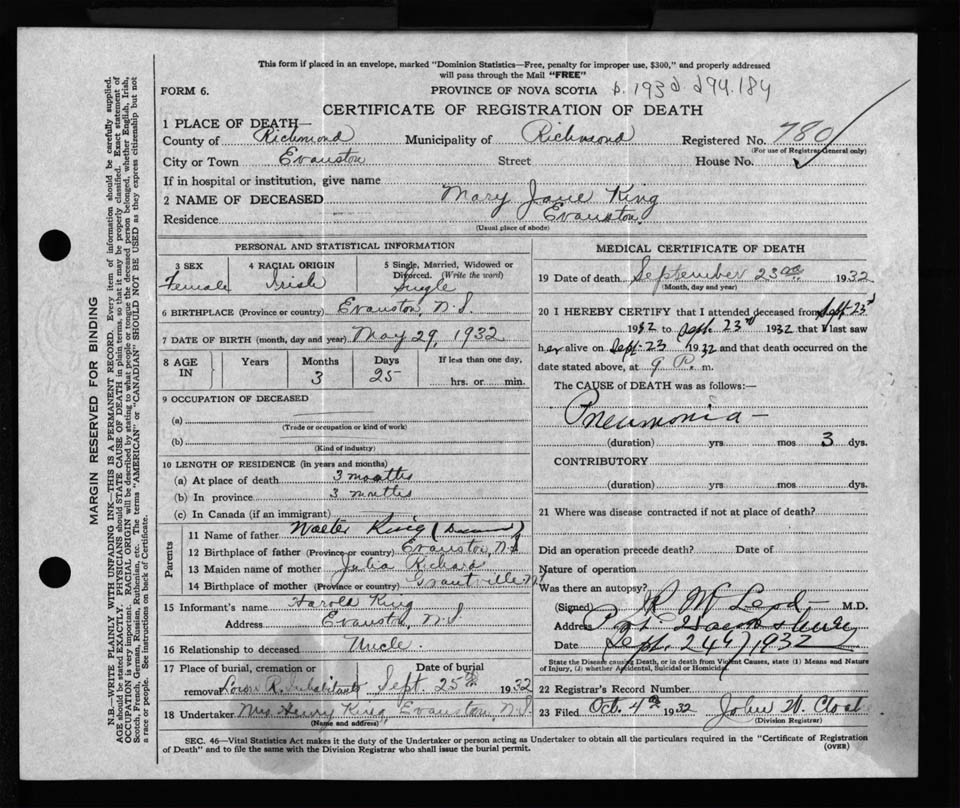 This form if placed in an envelope, marked "Dominion Statistics—Free, penalty for improper use, $300," and properly addressed
will pass through the Mail "FREE"
FORM 6.
PROVINCE OF NOVA SCOTIA
CERTIFICATE OF REGISTRATION OF DEATH
1 PLACE OF DEATH—
County of Richmond Municipality of Richmond Registered No. 780
(For use of Registrar General only)
City or Town Evanston Street House No.
If in hospital or institution, give name
2 NAME OF DECEASED Mary Jane King
Residence Evanston
(Usual place of abode)
PERSONAL AND STATISTICAL INFORMATION
3 SEX 4 RACIAL ORIGIN 5 Single, Married, Widowed or
Divorced. (Write the word)
Female Irish Single
6 BIRTHPLACE (Province or country) Evanston, N.S.
7 DATE OF BIRTH (month, day and year) May 29, 1932
8 AGE IN Years Months Days If less than one day,
3 25 hrs. or min.
9 OCCUPATION OF DECEASED
(a)
(Trade or occupation or kind of work)
(b)
(Kind of industry)
10 LENGTH OF RESIDENCE (in years and months)
(a) At place of death 3 months
(b) In province 3 months
(c) In Canada (if an immigrant)
Parents
11 Name of father Walter King
12 Birthplace of father (Province or country) Evanston, N.S
13 Maiden name of mother Julia Richard
14 Birthplace of mother (Province or country) Grantville N
15 Informant's name Harold King
Address Evanston, N.S.
16 Relationship to deceased Uncle
17 Place of burial, cremation or Date of burial
removal R. Inhabitants Sept. 25th 1932
18 Undertaker Mrs Henry King Evanston, N.S.
(Name and address)
MEDICAL CERTIFICATE OF DEATH
19 Date of death September 23rd 1932
(Month, day and year)
20 I HEREBY CERTIFY that I attended deceased from Sept 23rd
1932 to Sept. 23rd 1932 that I last saw
her alive on Sept. 23 1932 and that death occurred on the
date stated above, at 9 P. m.
The CAUSE of DEATH was as follows:—
Pneumonia —
(duration) yrs mos 3 dys.
CONTRIBUTORY
(duration) yrs. mos dys.
21 Where was disease contracted if not at place of death?
Did an operation precede death? Date of
Nature of operation
Was there an autopsy?
(Signed) M.D.
Address Port Hawkesbury
Date Sept. 24th 1932
State the Disease causing Death, or in death from Violent Causes, state (1) Means and Nature
of Injury, (2) whether Accidental, Suicidal or Homicidal.
22 Registrar's Record Number
23 Filed Oct. 4th 1932 John
(Division Registrar)
SEC. 46—Vital Statistics Act makes it the duty of the Undertaker or person acting as Undertaker to obtain all the particulars required in the "Certificate of Registration
of Death" and to file the same with the Division Registrar who shall issue the burial permit. (OVER)
MARGIN RESERVED FOR BINDING
N.B.—WRITE PLAINLY WITH UNFADING INK—THIS IS A PERMANENT RECORD. Every item of information should be carefully supplied.
AGE should be stated EXACTLY. PHYSICIANS should STATE CAUSE OF DEATH in plain terms, so that it may be properly classified. Exact statement of
OCCUPATION is very important. RACIAL ORIGIN will be described by stating to what people or tongue the deceased person belonged, whether English, Irish,
Scotch, French, German, Russian, Ruthenian, etc. The terms "AMERICAN" or "CANADIAN" SHOULD NOT BE USED as they express citizenship but not
a race or people. See instructions on back of Certificate.